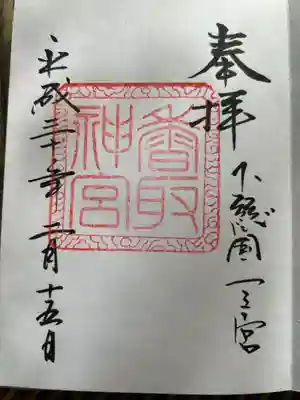 奉拝
下総國一之宮
香取
神宮
平成三十年二月十五日